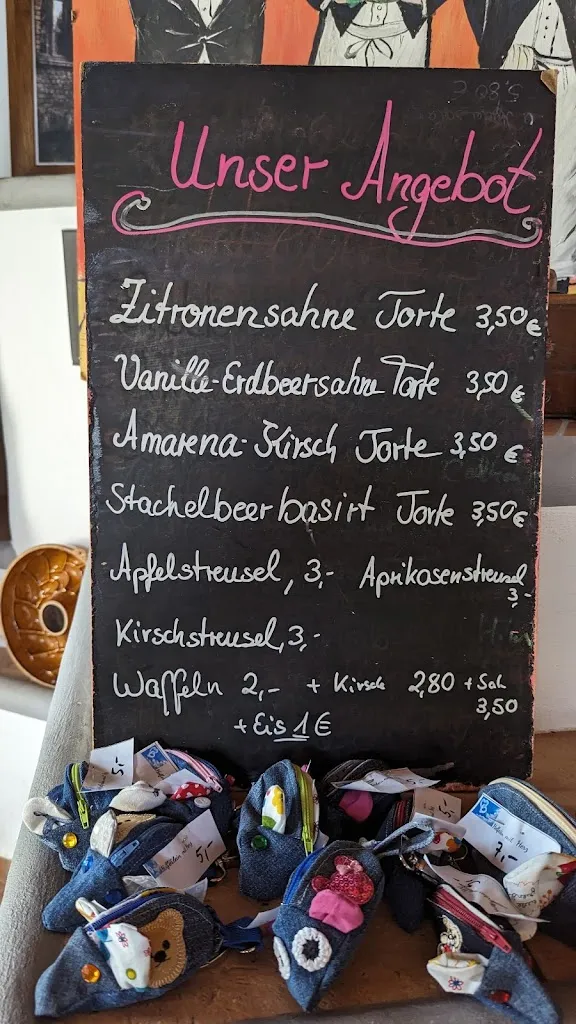 5,80 €
Unser Angebot
Zitronensahne Torte 3,50 €
Vanille-Erdbeersahne Torte 3,50 €
Amarena-Kirsch Torte 3,50 €
Stachelbeerbasirt Torte 3,50 €
Apfelstreusel, 3,- Aprikosenstreusel
3,-
Kirschstreusel, 3,-
Waffeln 2,- + Kirsch 2,80 + Sah
3,50
+ Eis 1 €
5,-
5,-
7,-
mit Herz